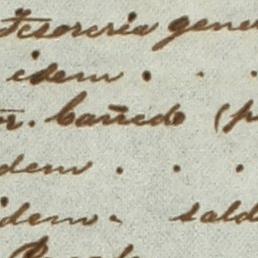 Tesoreria gene
idem . . .
r. Cañedo (p
dem . . .
idem. sald